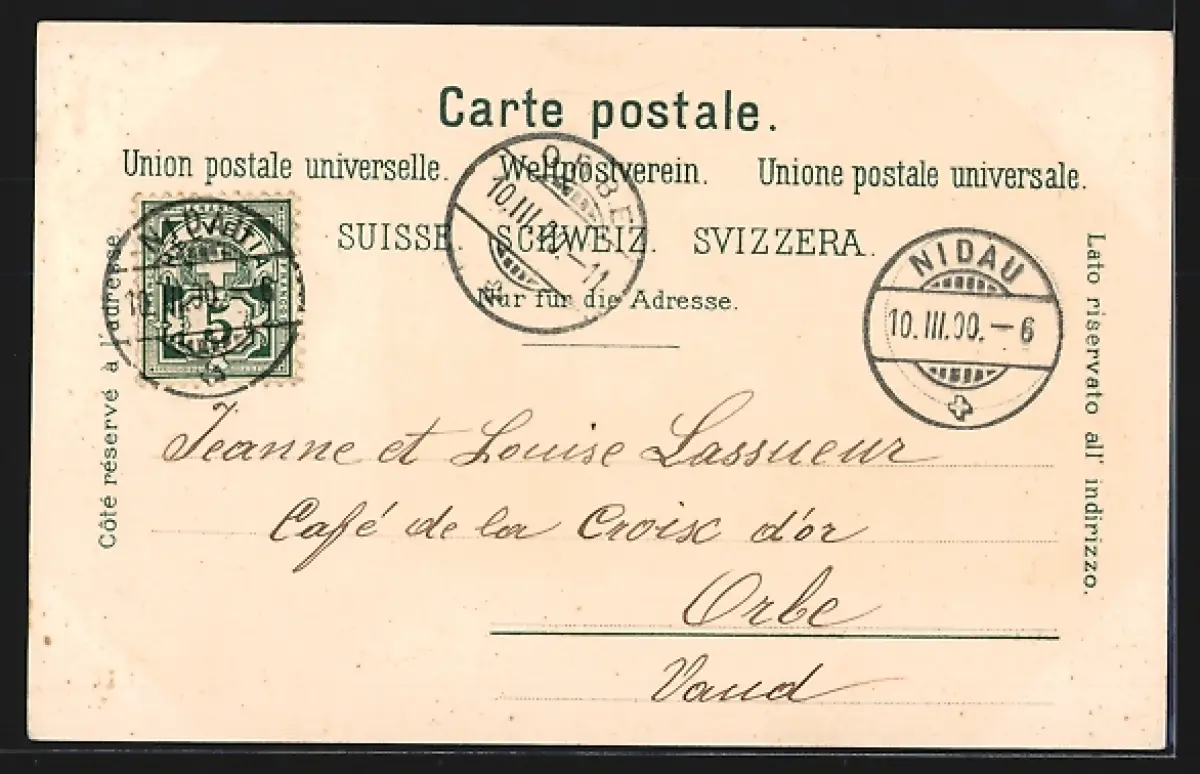 Carte postale.
Union postale universelle. Weltpostverein. Unione postale universale.
SUISSE. SCHWEIZ. SVIZZERA.
Nur für die Adresse.
Côté réservé à l'adresse.
Lato riservato all' indirizzo.
NIDAU
10.III.00.–6
ORBE
10.III.00.–11
NIDAU
HELVETIA
FRANCO
5
Jeanne et Louise Lassueur
Café de la Croix d'or
Orbe
Vaud